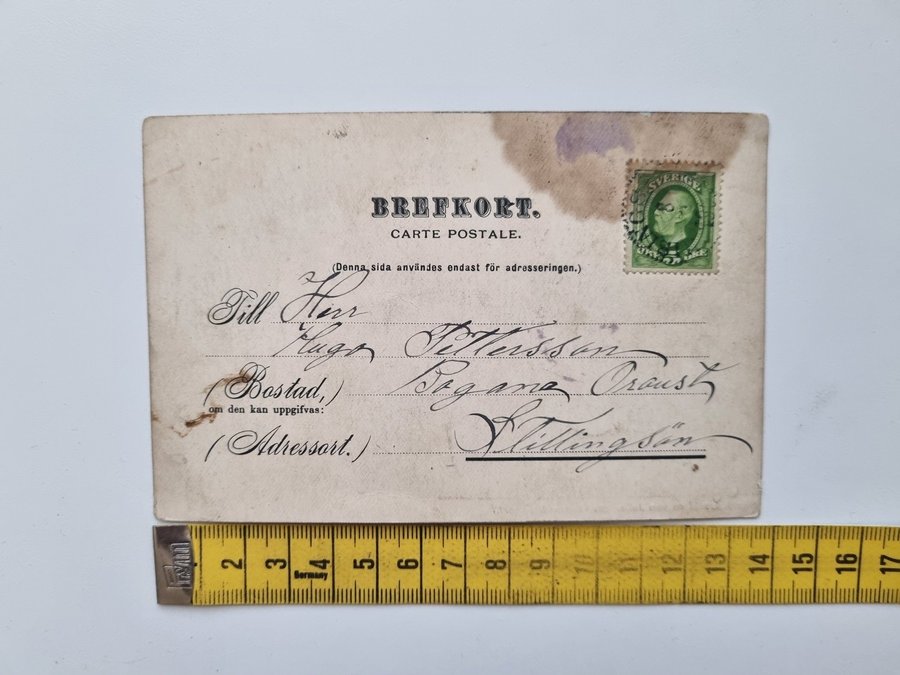 SVERIGE
BREFKORT.
CARTE POSTALE.
(Denna sida användes endast för adresseringen.)
Till Herr
Hugo Pettersson
(Bostad,) Bogana Oroust
om den kan uppgifvas:
(Adressort.) Stillingsön
2 3 4 5 6 7 8 9 10 11 12 13 14 15 16 17
Germany